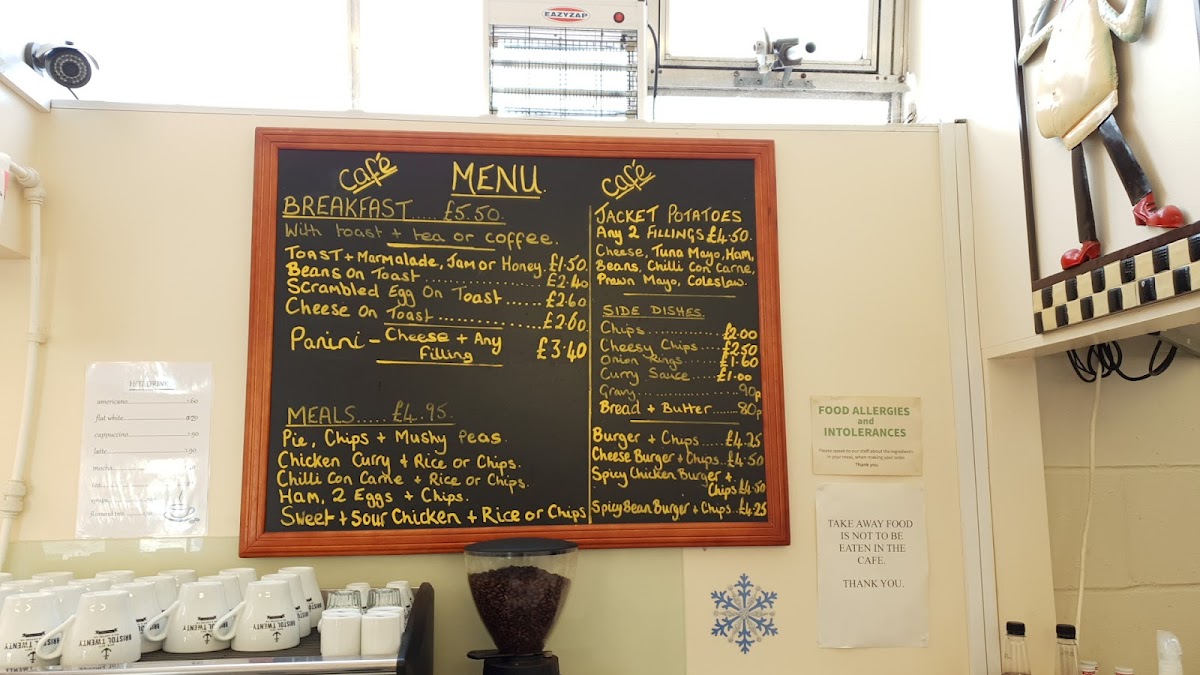 EAZYZAP
café
MENU.
café
BREAKFAST.....£5.50.
With toast + tea or coffee.
TOAST + Marmalade, Jam or Honey. £1.50.
Beans On Toast ............... £2.40
Scrambled Egg On Toast ...... £2.60
Cheese On Toast ................. £2.60
Panini - Cheese + Any
Filling
£3.40
MEALS..... £4.95.
Pie, Chips + Mushy Peas.
Chicken Curry + Rice or Chips.
Chilli Con Carne + Rice or Chips.
Ham, 2 Eggs + Chips.
Sweet + Sour Chicken + Rice or Chips
JACKET POTATOES
Any 2 FILLINGS £4.50.
Cheese, Tuna Mayo, Ham,
Beans, Chilli Con Carne,
Prawn Mayo, Coleslaw.
SIDE DISHES.
Chips ............ £2.00
Cheesy Chips ..... £2.50
Onion Rings ...... £1.60
Curry Sauce ..... £1.00
Gravy ............ 90p
Bread + Butter ....... 80p
Burger + Chips ..... £4.25
Cheese Burger + Chips.. £4.50
Spicy Chicken Burger +
Chips £4.50
Spicy Bean Burger + Chips.. £4.25
HOT DRINK
americano
flat white
cappuccino
latte
mocha
tea
FOOD ALLERGIES
and
INTOLERANCES
Please speak to our staff about the ingredients
in your meal, when making your order.
Thank you.
TAKE AWAY FOOD
IS NOT TO BE
EATEN IN THE
CAFE.
THANK YOU.
BRISTOL TWENTY
BRISTOL TWENTY